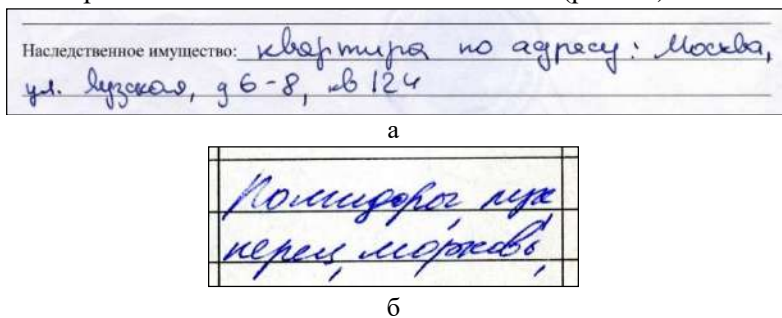 Наследственное имущество: квартира по адресу: Москва,
ул. Лузская, д 6-8, кв 124
а
Помидоры, лук
перец, морковь,
б